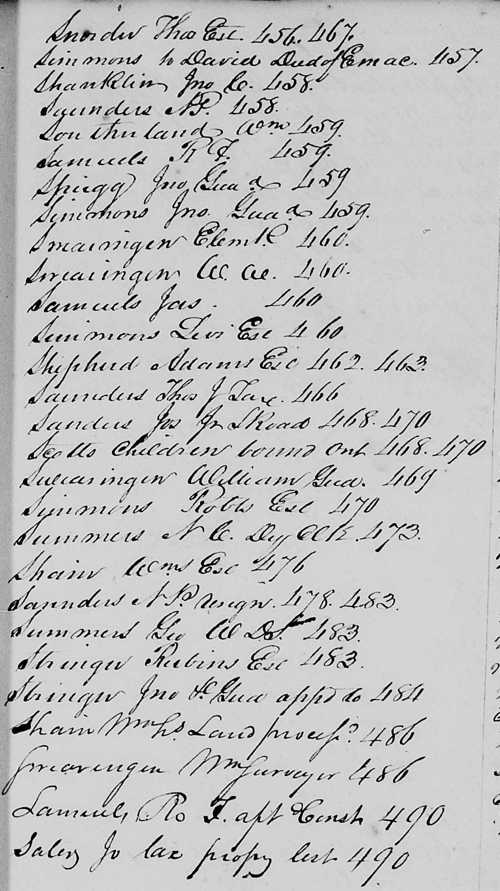 Snider Thos Est. 456. 467.
Simmons to David Deed of Emac. 457.
Shanklin Jno C. 458.
Saunders N P. 458.
Southerland Wm 459.
Samuels R T. 459.
Sprigg Jno, Gua 459
Simmons Jno. Gua 459.
Swearingen Elem 460.
Swearingen W. W. 460.
Samuels Jas. 460
Simmons Levi Est 460
Shipherd Adams Est 462. 463.
Saunders Thos J Tax. 466
Sanders Jos Jr Road 468. 470
Scotts Children bound out 468. 470
Swearingen William Gua. 469
Simmons Robts Est 470
Summers N C. Dy Clk. 473.
Shain Wms Est 476
Saunders N P. resign. 478. 483.
Summers Geo W D.S. 483.
Stringer Rubins Est 483.
Stringer Jno Gua appd to 484
Shain Wm hs Land 486
Swearengen Wm Surveyor 486
Samuels Ro T. apt Const 490
Sales Jo tax propy list 490